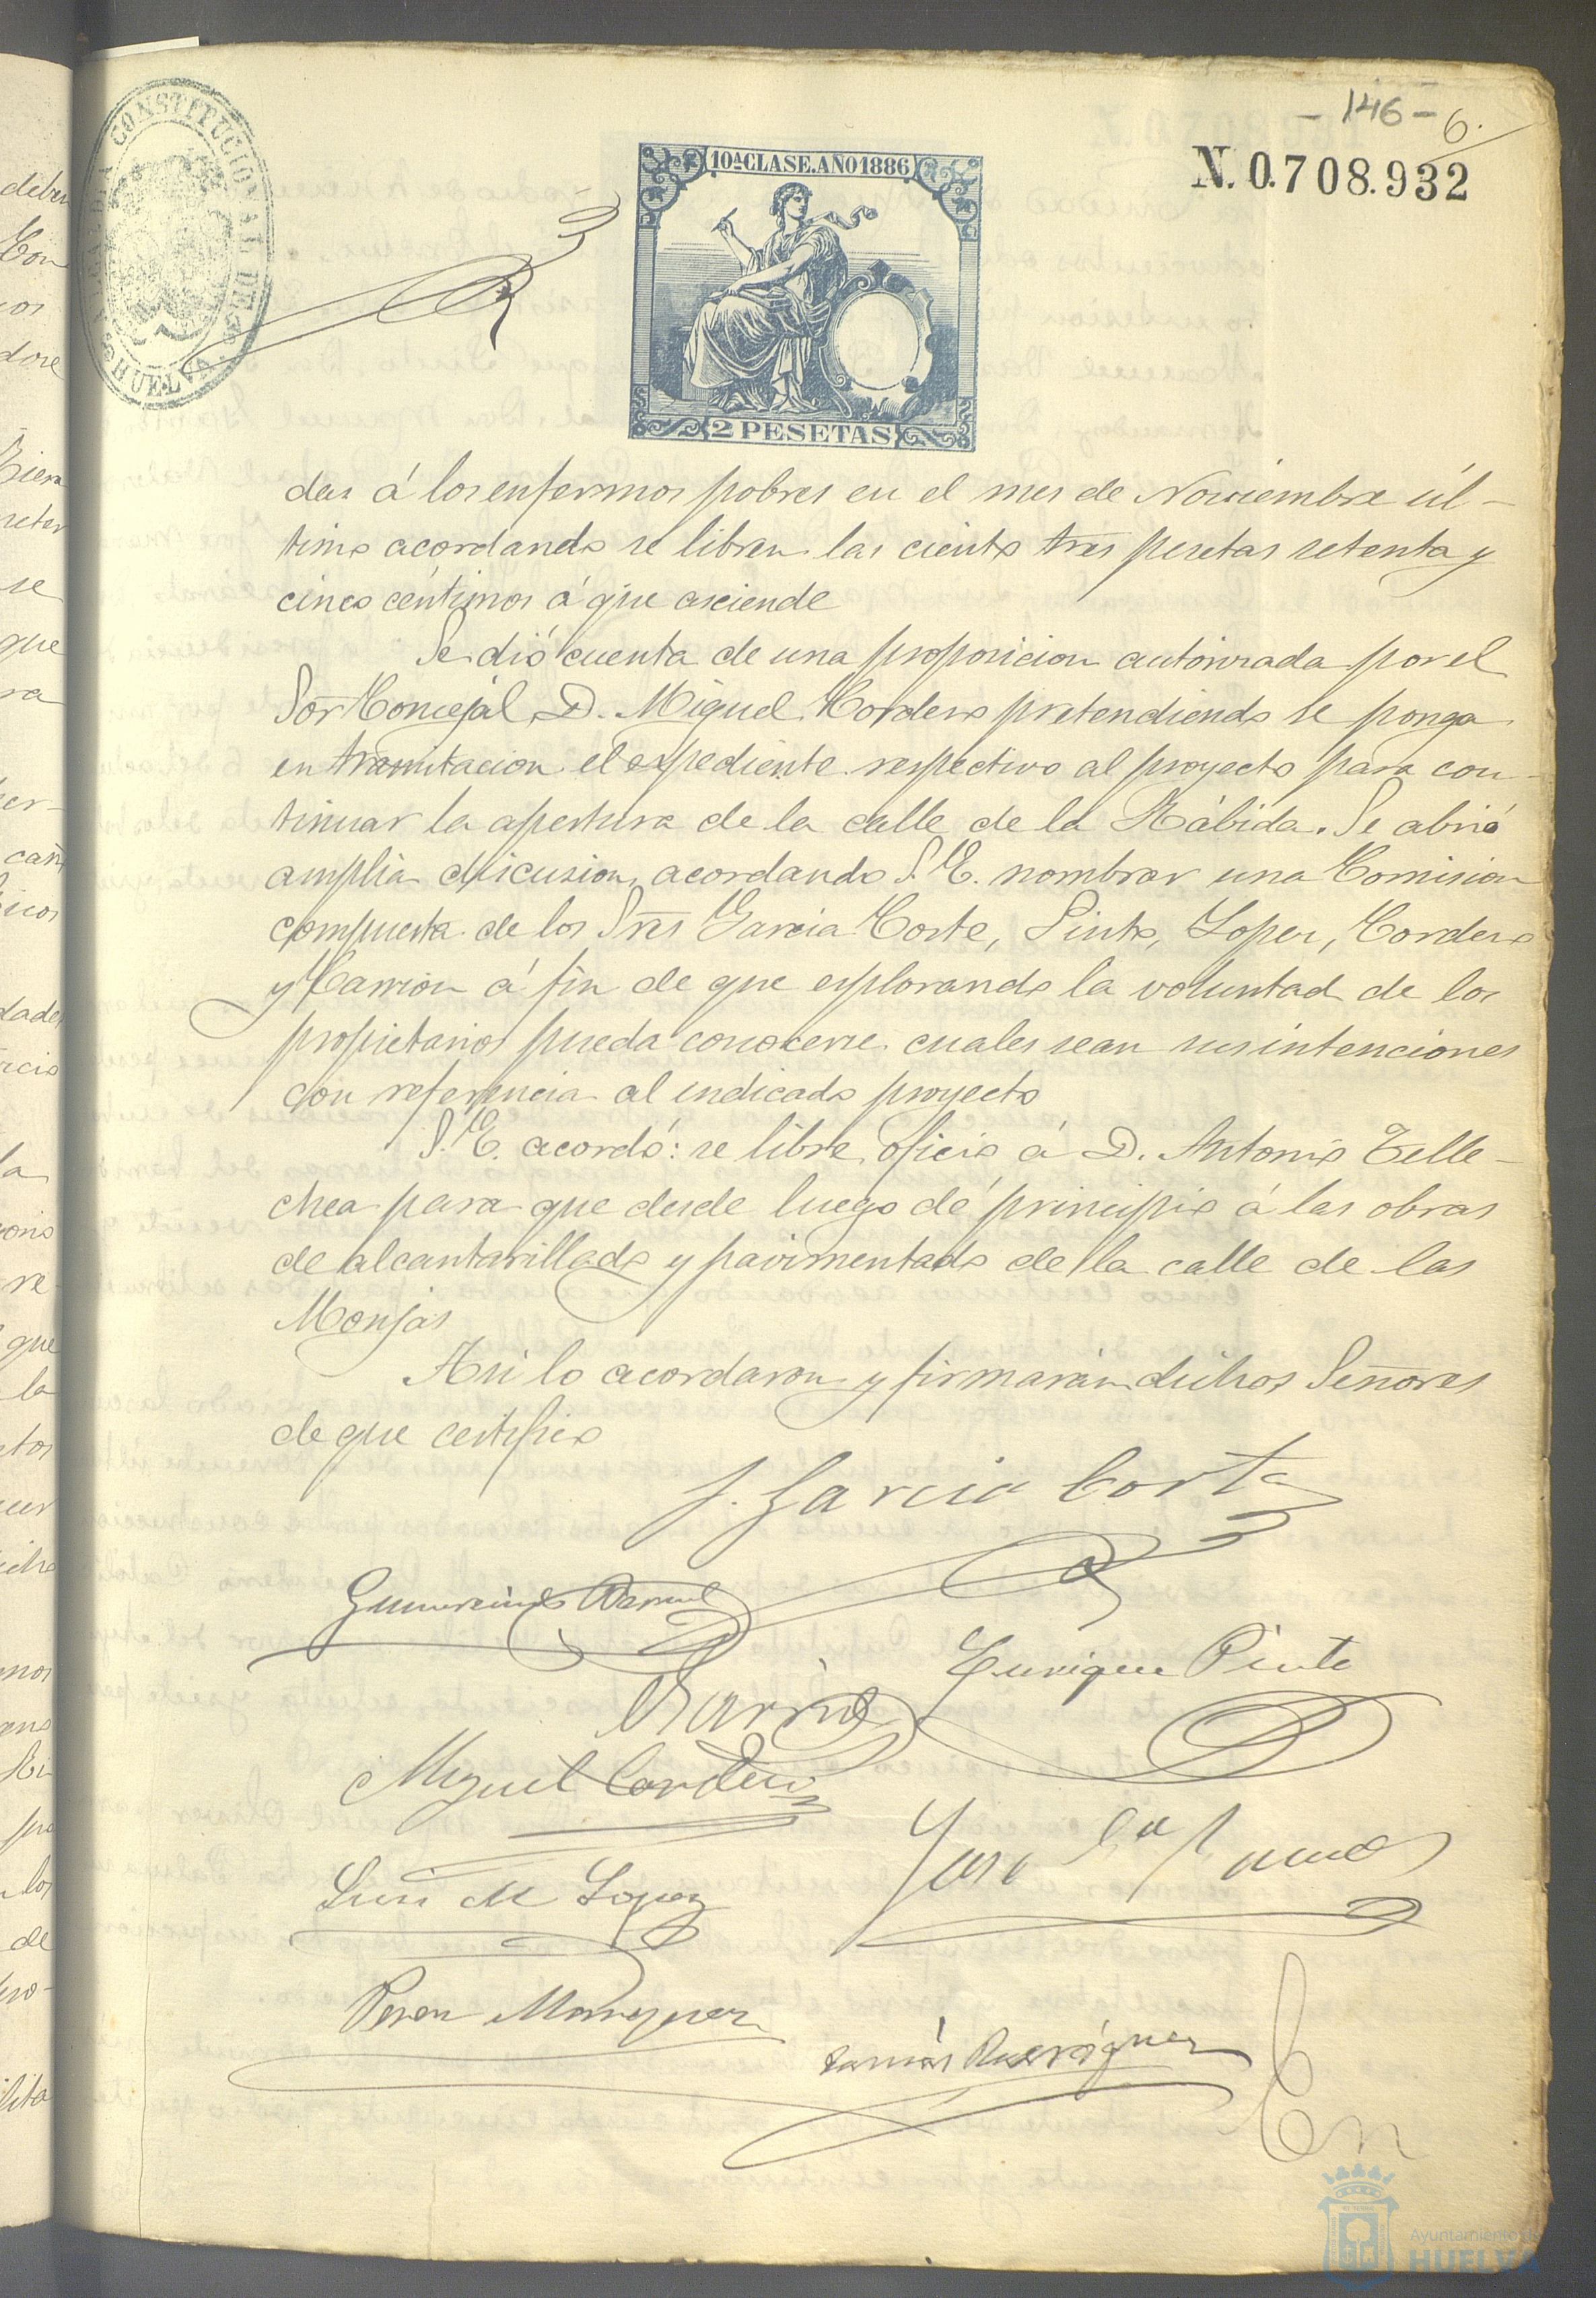 - 146 -
6.
N. 0.708.932
ALCALDIA CONSTITUCIONAL DE HUELVA
10ª CLASE. AÑO 1886
2 PESETAS
das á los enfermos pobres en el mes de Noviembre úl-
timo acordando se libren las ciento tres pesetas setenta y
cinco céntimos á que asciende
Se dió cuenta de una proposicion autorizada por el
Sor Concejal D. Miguel Cordero pretendiendo se ponga
en tramitacion el expediente respectivo al proyecto para con-
tinuar la apertura de la calle de la Rábida. Se abrió
amplia discusion, acordando S. E. nombrar una Comision
compuesta de los Sres Garcia Corte, Pinto, Lopez, Cordero
y Carrion á fin de que esplorando la voluntad de los
propietarios pueda conocerse cuales sean sus intenciones
con referencia al indicado proyecto
S. E. acordó: se libre oficio á D. Antonio Telle-
chea para que desde luego dé principio á las obras
de alcantarillado y pavimentado de la calle de las
Monjas
Asi lo acordaron y firmarán dichos Señores
de que certifico
J. Garcia Corte
Gumersindo
Enrique Pinto
Miguel Cordero
Jose Gª Ramos
Luis M Lopez
Perez Marquez
Tomás Rodríguez
En
Ayuntamiento de
HUELVA